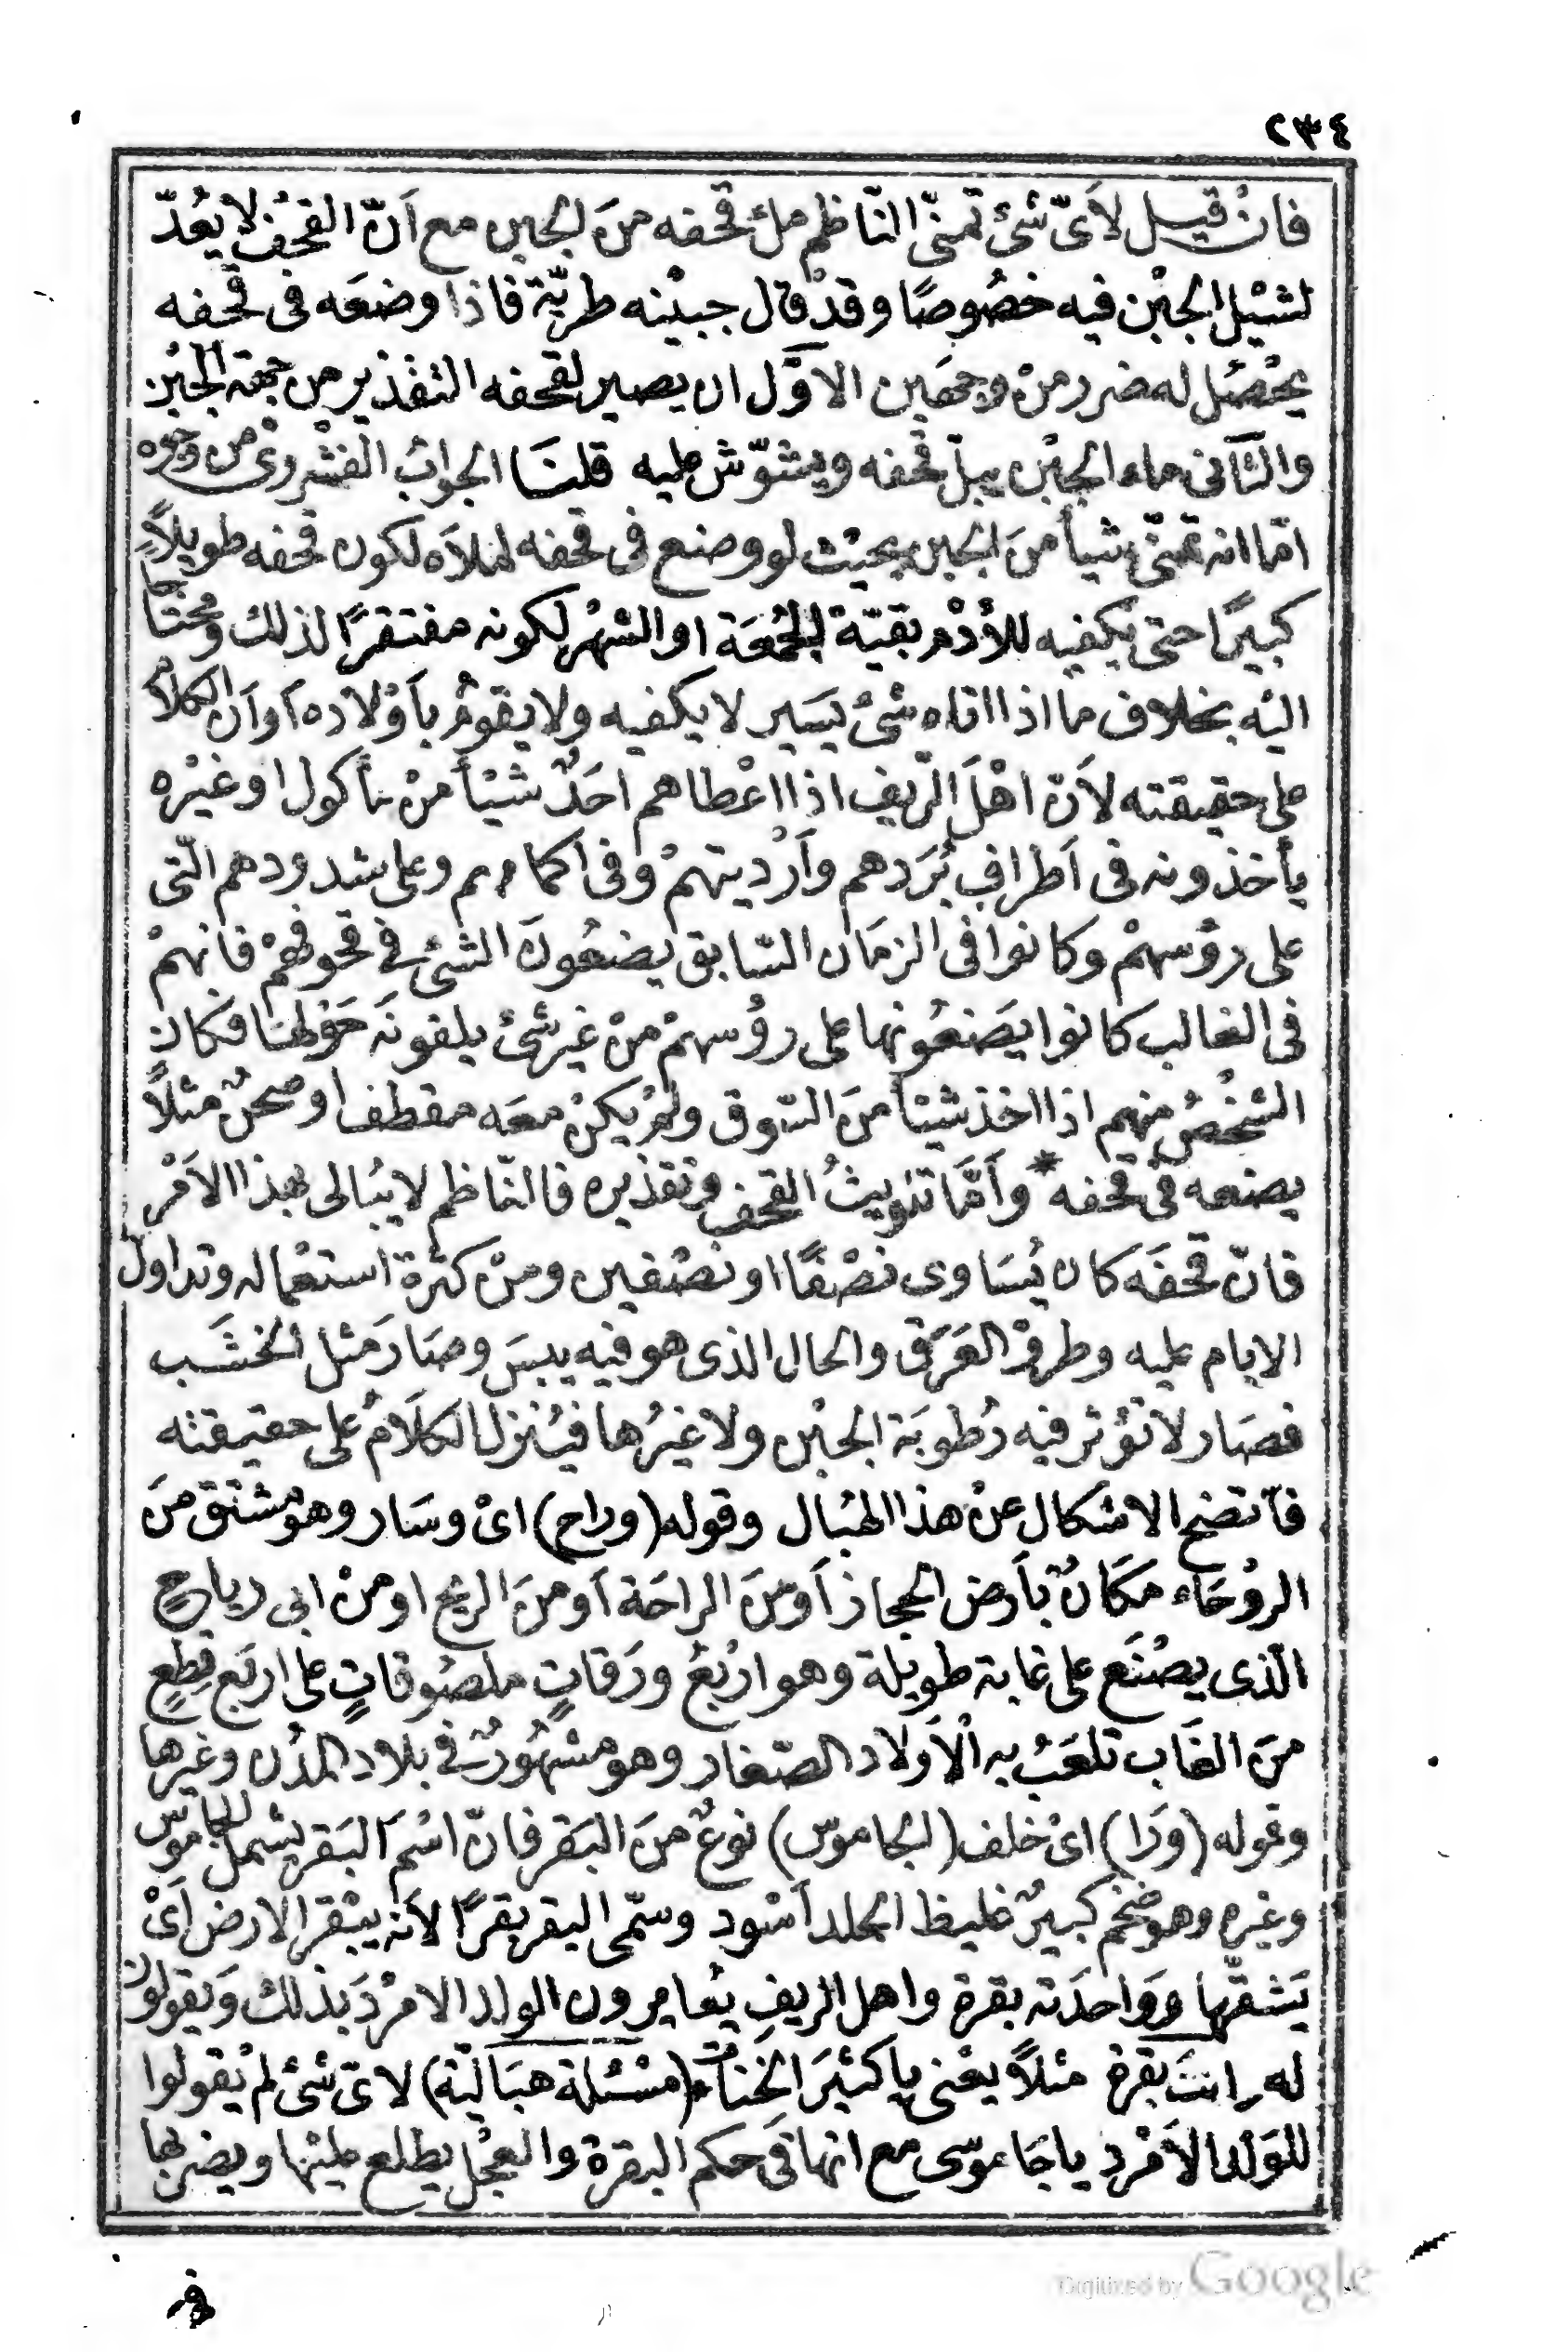 ٢٣٤
فان قيل لأىّ شئ تمنّى الناظم ملئ قحفه منَ الجبن مع اَنّ القحف لا يُعَدّ
لشيْل الجبْن فيه خصُوصًا وقدْ قال جبيْنه طريّة فاذا وضعَه فى قحفه
يحْصُل له ضرر منْ وجهين الاوّل ان يصير لقحفه التقذير من جهة الجبْن
والثّانى ماء الجبْن يبلّ قحفه ويشوّش عليه قلنَا الجوابُ الفشروىْ من وجوه
امّا انه تمنّى شيأ منَ الجبن بحيْث لو وضع فى قحفه لملاَه لكون قحفه طويلاً
كبيرًا حتى يكفيه للأدْم بقيّة الجمُعَة او الشهْر لكونه مفتقرًا لذلك ومحتاجًا
اليْه بخلاف ما اذا اتاه شئ يسَير لا يكفيه ولا يقومُ بأوْلاده اَو اَن الكلامُ
على حقيقته لاَنّ اهْلَ الرّيف اذا اعْطاهم احَدٌ شيْأً منْ مأكول او غيْره
يأخذونه فى اَطراف بُرَدهم وأرْديتهمْ وفى اكمامهم وعلى شدودهم الّتى
على رؤسهمْ وكانوا فى الزمَان السّابق يضعُونَ الشئ فى قحوفهمْ فانهمْ
فى الغالب كانوا يَضعُونها على رؤسهمْ منْ غير شئ يلفونَه حَوْلهَا فكان
الشخْصُ منهم اذا اخذ شيئا منَ السّوق ولمْ يكنْ معَه مقطف او صحنٌ مثلاً
يضعه فى قحفه * وأمَّا تلويثُ القحف وتقذيره فالنّاظم لا يُبالى بهذا الاَمْر
فانّ قحفَه كان يُسَاوى نصْفًا او نصْفين ومنْ كثرة استعْماله وتداول
الايام عليه وطرقْ العَرَق والحال الذى هو فيه يبسَ وصَارَ مثل الخشَب
فصَار لا تؤثر فيه رُطوبَة الجبْن ولا غيرُها فيُنزل الكلاَمُ على حقيقته
فاَتضح الاشكال عنْ هذا الهبَال وقوله (وراح) اىْ وسَار وهو مشتق منَ
الروْحَاء مكَانٌ بأَرض الحجاز اَو منَ الراحَة اَو منَ الريح او منْ ابى رياحٍ
الّذى يصْنَع على غابة طويلة وهو اربْعُ ورَقاتٍ ملصُوقاتٍ على اربَع قِطعٍ
منَ الغَاب تلعَبُ به الاَولاد الصّغار وهو مشْهُورٌ فى بلاد المدُن وغيرها
وقوله (وَرَا) اىْ خلف (الجاموسّ) نوعٌ منَ البَقر فانّ اسْم البَقر يشملُ الجاموس
وغيره وهو ضخم كبيرٌ غليظ الجلد اَسْود وسمّى البقر بقرًا لاَنه يبْقر الارض اَىْ
يَشقّها ووَاحدَته بقرة واهل الريفِ يعُايرون الولد الامْردَ بذلك وَيقولون
له انتَ بقرة مثلاً يعْنى يا كثيْرَ الخناث (مسْئلة هبَاليّة) لاىّ شئ لمْ يقولوا
للوَلد الاَمْرد يا جَاموسى مع انها فى حكم البقرة والعجْل يطلع عليْها ويضربها
Digitized by Google